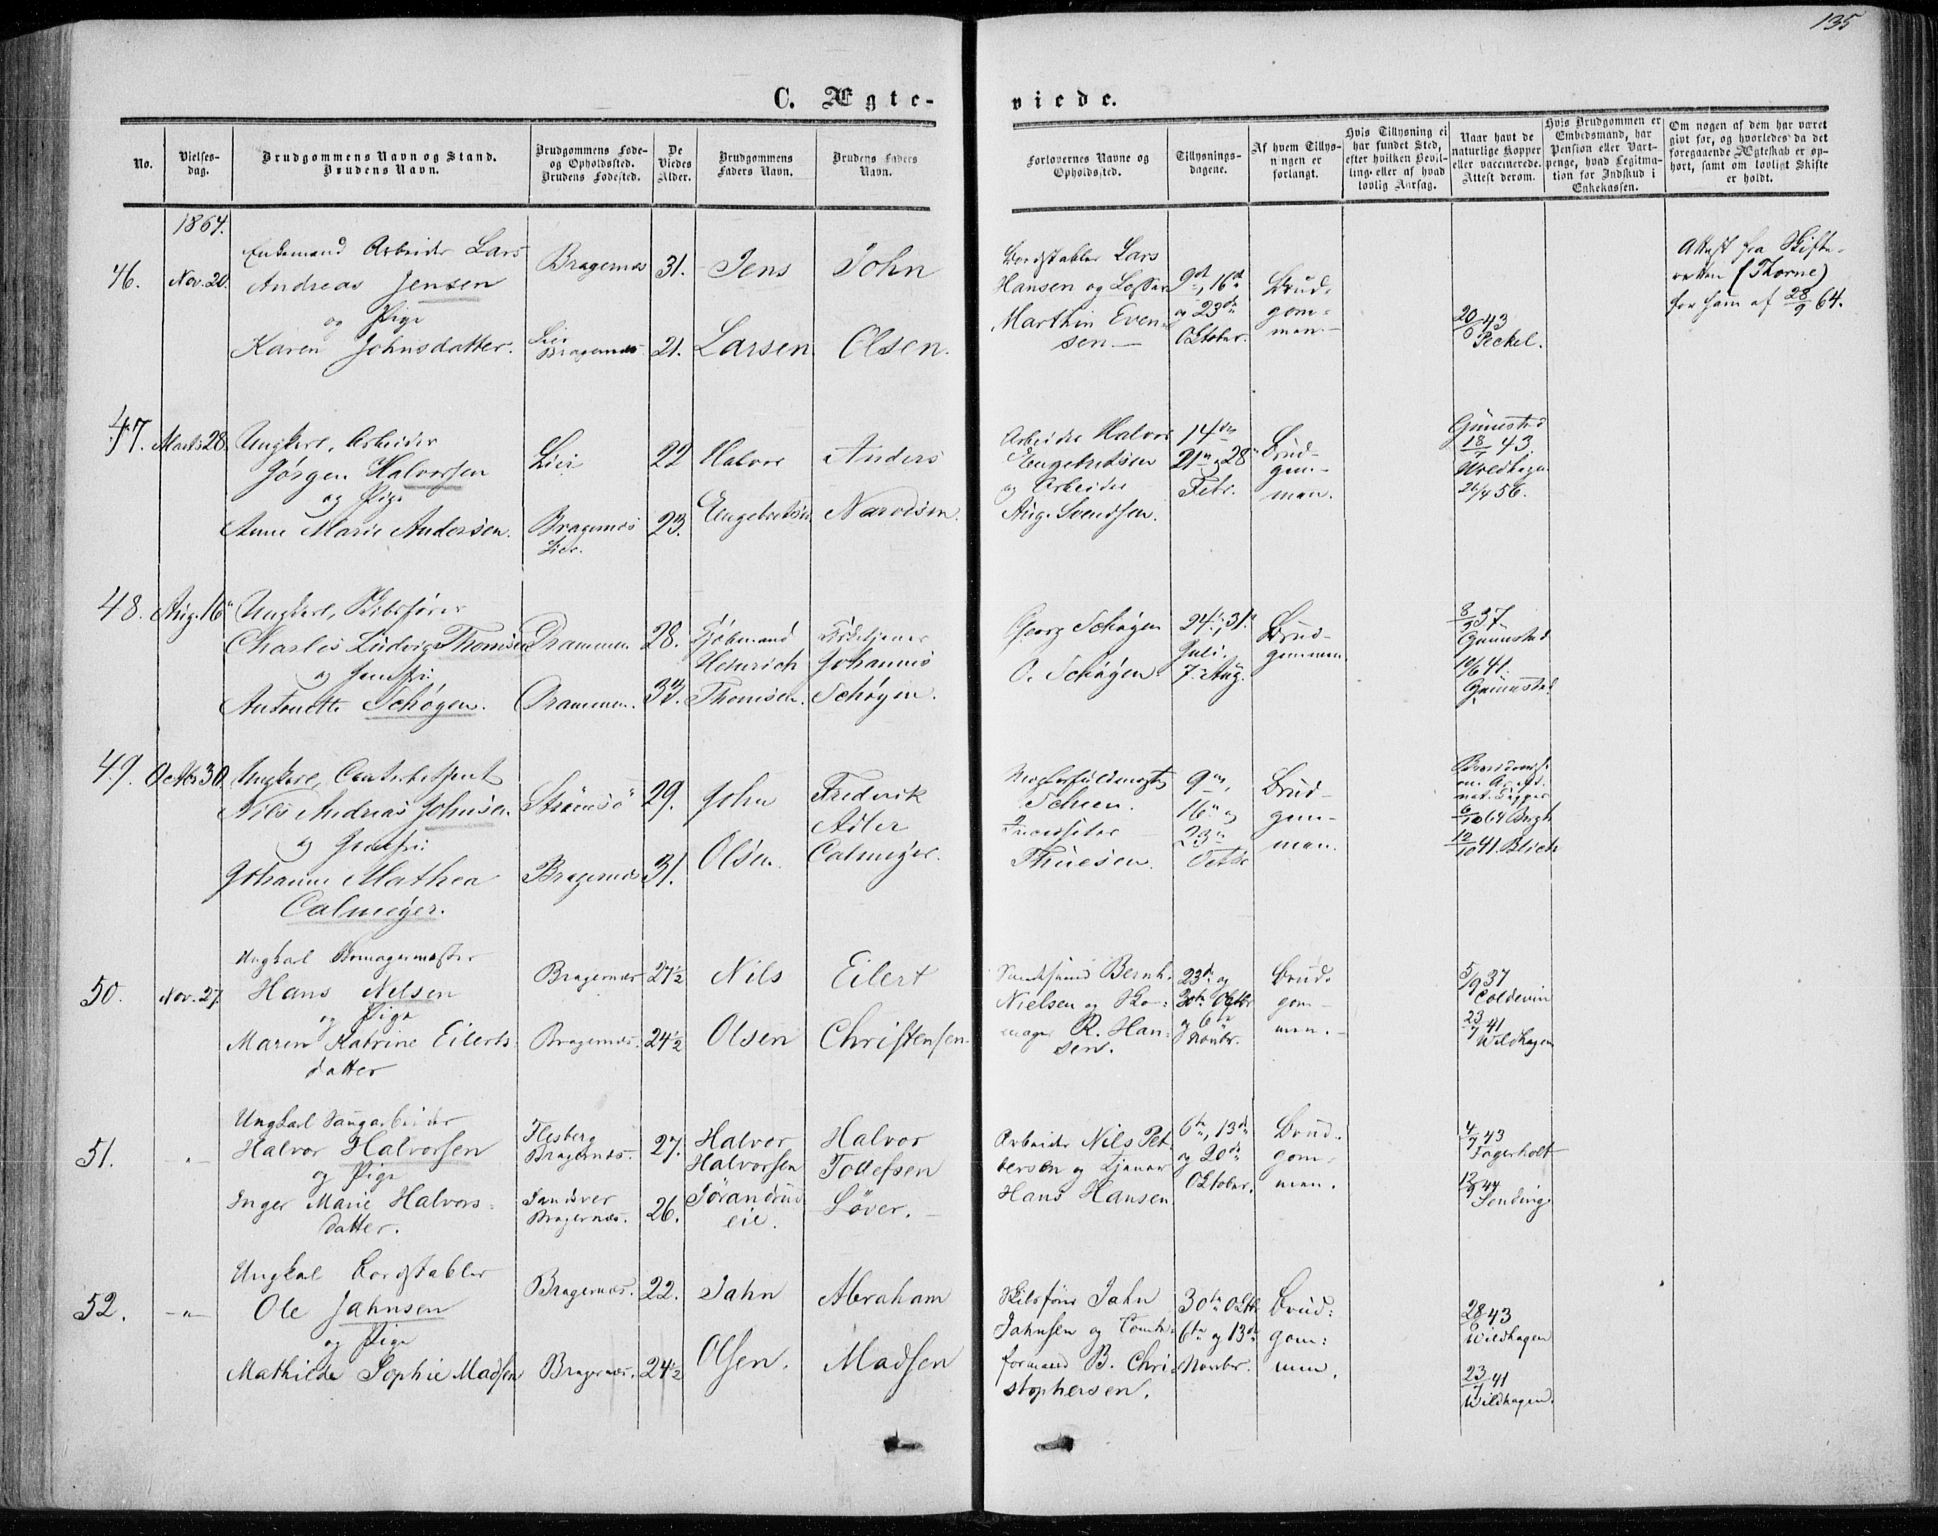 135
C. Ægte-
viede.
No.
Vielses-
dag.
Brudgommens Navn og Stand.
Brudens Navn.
Brudgommens Føde-
og Opholdssted.
Brudens Fødested.
De
Viedes
Alder.
Brudgommens
Faders Navn.
Brudens Faders
Navn.
Forlovernes Navne og
Opholdssted.
Tillysnings-
dagene.
Af hvem Tillys-
ningen er
forlangt.
Hvis Tillysning ei
har fundet Sted,
efter hvilken Bevil-
ling eller af hvad
lovlig Aarsag.
Naar havt de
naturlige Kopper
eller vaccinerede.
Attest derom.
Hvis Brudgommen er
Embedsmand, har
Pension eller Vart-
penge, hvad Legitima-
tion for Indskud i
Enkekassen.
Om nogen af dem har været
givt for, og hvorledes da det
foregaaende Ægteskab er op-
hørt, samt om lovligt Skifte
er holdt.
1864.
46.
Nov. 20.
Enkemand Arbeider Lars
Andreas Jensen
og Pige
Karen Johnsdatter.
Bragernæs
Lier
Bragernæs
31.
21.
Jens
Larsen
John
Olsen.
Lars
Hansen og
Marthin Even-
sen
9de, 16de
og 23de
Oktober.
Brud-
gom-
men.
20/ 43
Peckel.
Attest fra Skifte-
retten (Thorne)
for ham af 28/9 64.
47.
Marts 28.
Ungkarl, Arbeider
Jørgen Halvorsen
og Pige
Anne Marie Andersen.
Lier
Bragernæs
Lier.
22
23.
Halvor
Engebretsen
Anders
Narvesen.
Arbeider Halvor
Engebretsen
og Arbeider
Aug. Svendsen.
14de
21de 28
Febr.
Brud-
gom-
men.
Grimsted
18/ 43
Wildhagen
26/4 56.
48.
Aug. 16
Ungkarl, Skibsfører
Charles Ludvig Thomsen
og Jomfru
Antonette Schøgen.
Drammen
Drammen.
28.
33.
Kjøbmand
Heinrich
Thomsen.
Johannes
Schøgen.
Georg Schøgen
O. Schøgen
24, 31
Juli.
7 Aug.
Brud-
gommen.
8/ 37
Grimsted
10/6 41.
Grimsted
49.
Octbr 30.
Ungkarl, Contorbetjent
Nils Andreas Johnsen.
og Jomfru
Johanne Mathea
Calmeyer.
Strømsø
Bragernæs
29.
31.
John
Olsen.
Frederik
Adler
Calmeyer.
Scheen.
Thuesen.
9de,
16 og
23
Octbr
Brud-
gom-
men.
6/10 64
12/10 41. Blich
50.
Nov. 27.
Ungkarl Skomagermester
Hans Nelsen
og Pige
Maren Katrine Eilerts-
datter
Bragernæs
Bragernæs.
27½
24½
Nils
Olsen
Eilert
Christensen
Bernh.
Nielsen og Sko-
mager R. Han-
sen.
23de og
30te Oktbr
og 6te
Novbr.
Brud-
gom-
men.
5/9 37
Coldevin
23/7 41
Wildhagen
51.
-"-
Ungkarl Saugarbeider
Halvor Halvorsen
og Pige
Inger Marie Halvors-
datter.
Flesberg
Bragernæs.
Sandsver
Bragernæs.
27.
26.
Halvor
Halvorsen
eie.
Halvor
Tollefsen
Arbeider Nils Pet-
tersen og Tjener
Hans Hansen
6te, 13de
og 20de
Oktober.
Brud-
gom-
men.
4/7 43
Fagerholt
44
52.
-"-
Ungkarl Bordstabler
Ole Jahnsen
og Pige
Mathilde Sophie Madsen
Bragernæs.
Bragernæs.
22.
24½
Jahn
Olsen.
Abraham
Madsen
Skibsfører Jahn
Jahnsen og Tomte-
formand B. Chri-
stophersen.
30te Oktbr
6te og 13de
Novbr.
Brud-
gom-
men.
28/ 43
Wildhagen
23/7 41
Wildhagen.